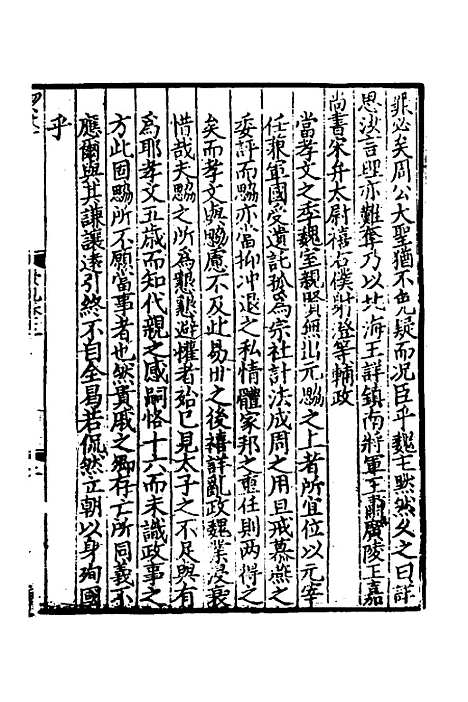 罪必矣周公大聖猶不免疑而况臣乎魏主黙然久之曰詳
思汝言理亦難奪乃以北海王詳鎮南將軍王肅廣陵王嘉
尚書宋弁太尉禧右僕射澄等輔政
當孝文之季魏室親賢無出元勰之上者所宜位以元宰
任兼軍國受遺託孤為宗社計法成周之用旦戒慕燕之
委評而勰亦當抑冲退之私情體家邦之重任則两得之
矣而孝文與勰慮不及此易世之後禧詳亂政魏業浸衰
惜哉夫勰之所為懇懇避權者殆已見太子之不足與有
為耶孝文五歲而知代親之感嗣恪十六而未識政事之
方此固勰所不願當事者也然貴戚之卿存亡所同義不
應爾與其謙讓逺引終不自全曷若侃然立朝以身殉國
乎